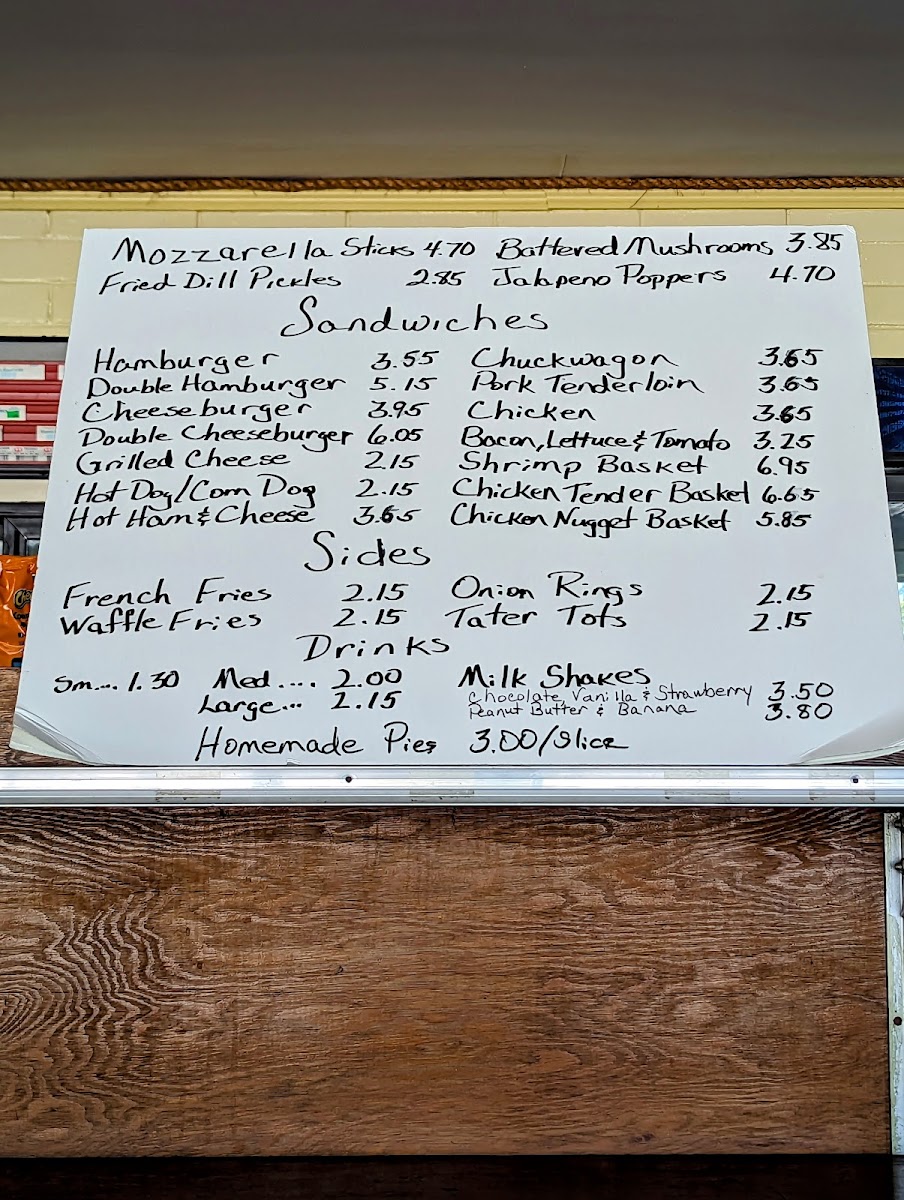 Mozzarella Sticks 4.70 Battered Mushrooms 3.85
Fried Dill Pickles 2.85 Jalapeno Poppers 4.70
Sandwiches
Hamburger 3.55 Chuckwagon 3.65
Double Hamburger 5.15 Pork Tenderloin 3.65
Cheeseburger 3.95 Chicken 3.65
Double Cheeseburger 6.05 Bacon, Lettuce & Tomato 3.25
Grilled Cheese 2.15 Shrimp Basket 6.95
Hot Dog/Corn Dog 2.15 Chicken Tender Basket 6.65
Hot Ham & Cheese 3.65 Chicken Nugget Basket 5.85
Sides
French Fries 2.15 Onion Rings 2.15
Waffle Fries 2.15 Tater Tots 2.15
Drinks
Sm.... 1.30 Med .... 2.00 Milk Shakes
Large... 2.15 Chocolate, Vanilla & Strawberry 3.50
Peanut Butter & Banana 3.80
Homemade Pies 3.00/Slice